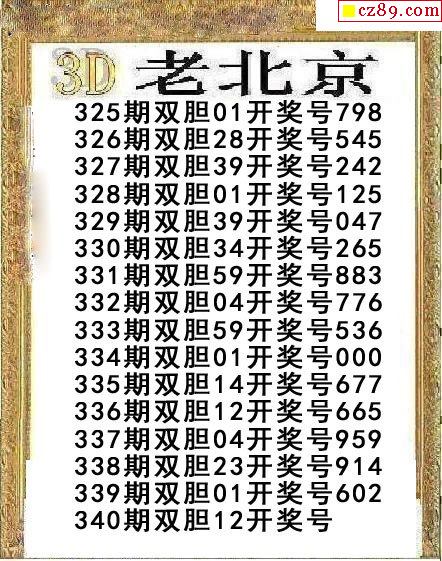 cz89.com
3D 老北京
325期双胆01开奖号798
326期双胆28开奖号545
327期双胆39开奖号242
328期双胆01开奖号125
329期双胆39开奖号047
330期双胆34开奖号265
331期双胆59开奖号883
332期双胆04开奖号776
333期双胆59开奖号536
334期双胆01开奖号000
335期双胆14开奖号677
336期双胆12开奖号665
337期双胆04开奖号959
338期双胆23开奖号914
339期双胆01开奖号602
340期双胆12开奖号